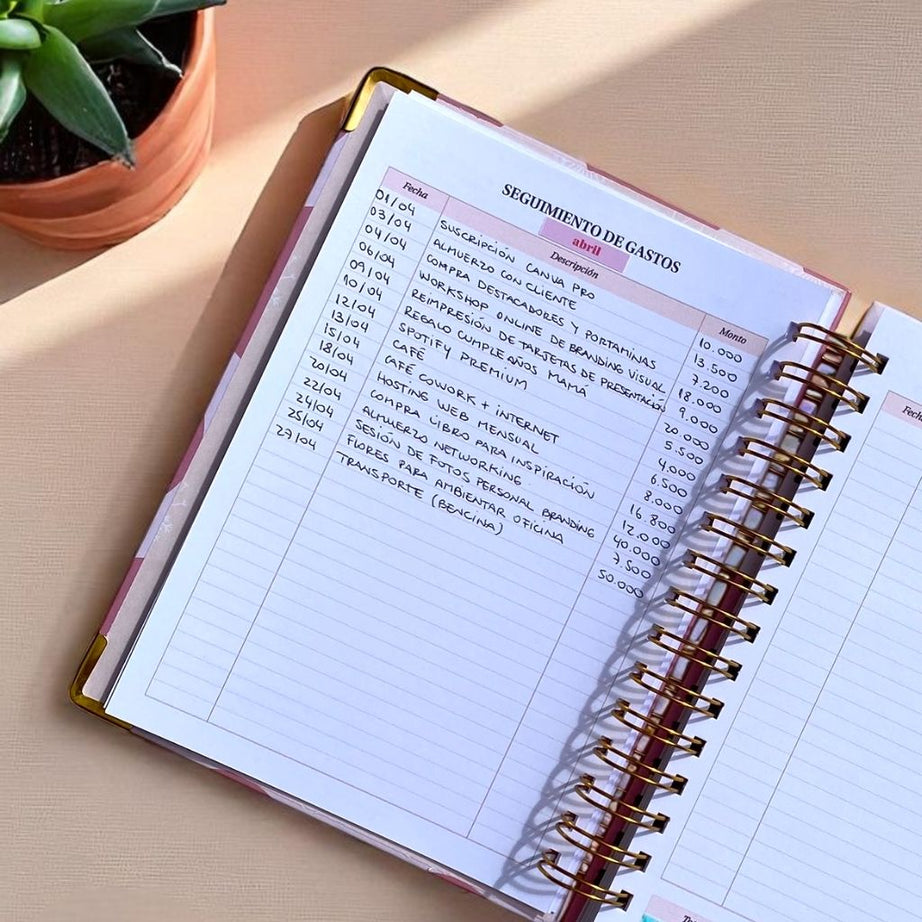 SEGUIMIENTO DE GASTOS
abril
Fecha Descripción Monto
01/04 SUSCRIPCIÓN CANVA PRO 10.000
03/04 ALMUERZO CON CLIENTE 13.500
04/04 COMPRA DESTACADORES Y PORTAMINAS 7.200
06/04 WORKSHOP ONLINE DE BRANDING VISUAL 18.000
09/04 REIMPRESIÓN DE TARJETAS DE PRESENTACIÓN 9.000
10/04 REGALO CUMPLEAÑOS MAMÁ 20.000
12/04 SPOTIFY PREMIUM 5.500
13/04 CAFÉ 4.000
15/04 CAFÉ COWORK + INTERNET 6.500
18/04 HOSTING WEB MENSUAL 8.000
20/04 COMPRA LIBRO PARA INSPIRACIÓN 16.800
22/04 ALMUERZO NETWORKING 12.000
24/04 SESIÓN DE FOTOS PERSONAL BRANDING 40.000
25/04 FLORES PARA AMBIENTAR OFICINA 7.500
27/04 TRANSPORTE (BENCINA) 50.000